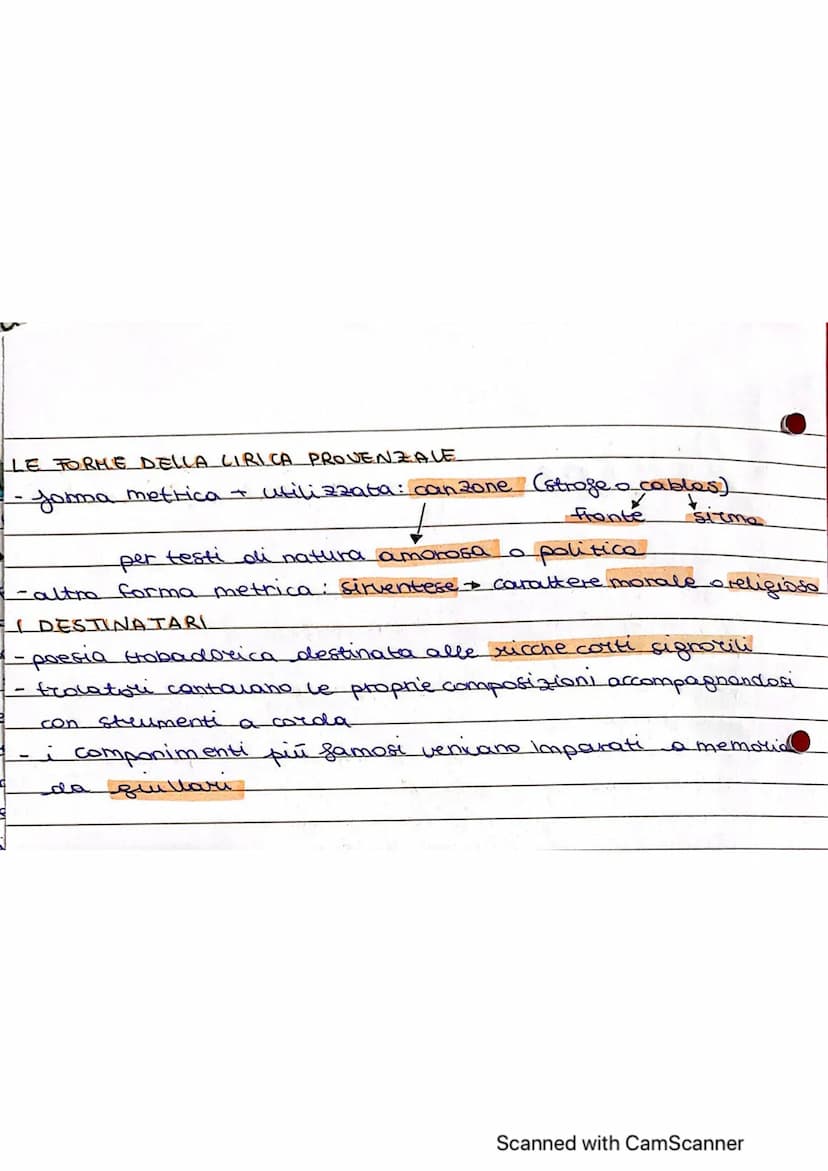 LE FORME DELLA LIRICA PROVENZALE
- forma metrica + utilizzata: canzone (strofe o cables)
fronte sirma
per testi di natura amorosa o politica
- altra forma metrica: sirventese → carattere morale o religioso
I DESTINATARI
- poesia trobadorica destinata alle ricche corti signorili
- trovatori cantavano le proprie composizioni accompagnandosi
con strumenti a corda
- i componimenti più famosi venivano imparati a memoria
da giullari
Scanned with CamScanner